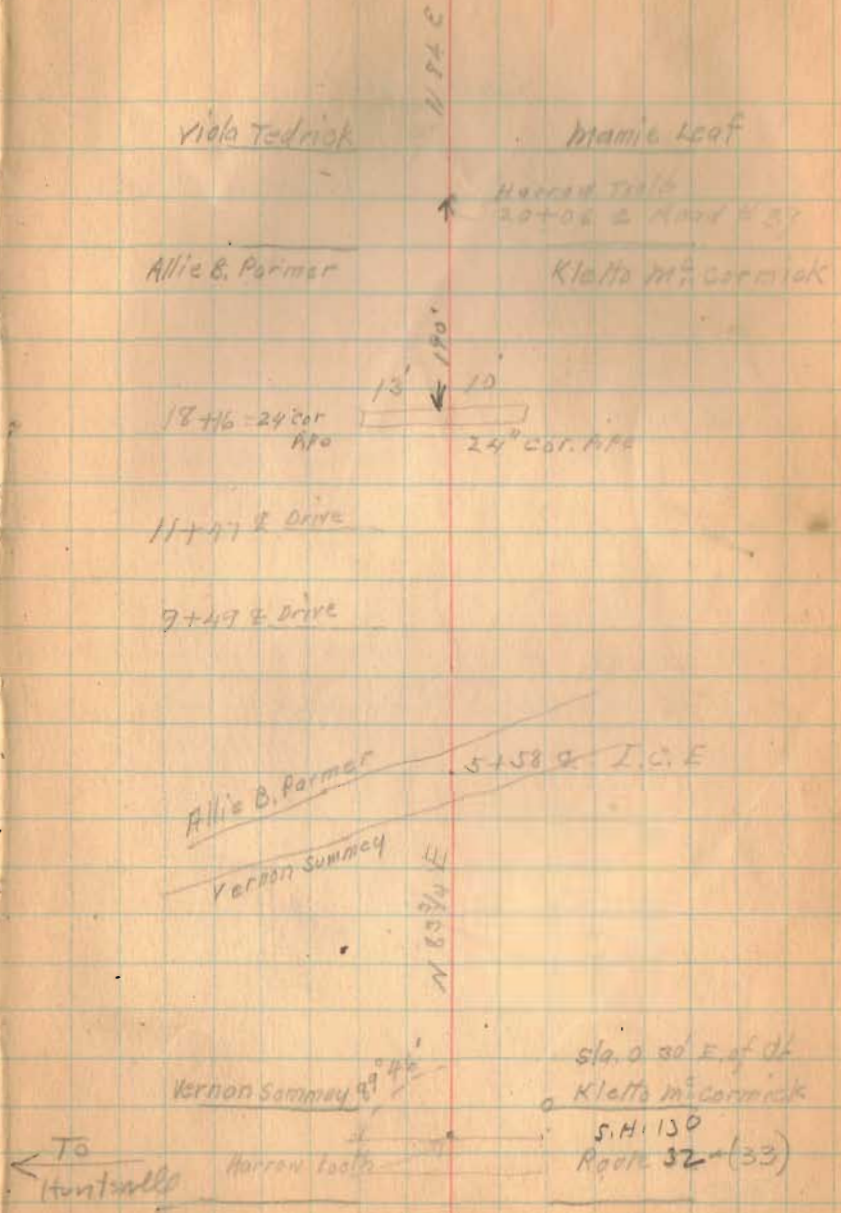 N 84 E
Viola Tedrick
Mamie Leaf
Harrow Tooth
20+06 ℄ Road # 32
Allie B. Parmer
Kletto Mc.Cormick
190'
13' 10'
18+16 = 24" cor
Pipe
24" cor. Pipe
11+47 ℄ Drive
9+49 ℄ Drive
Allie B. Parmer
5+58 ℄ I.C.E
Vernon Summey
N 83 3/4 E
Sta. 0 30' E. of
Vernon Summey 89°
Kletto Mc.Cormick
S.H. 130
To
Harrow tooth
Route 32-(33)
Huntsville